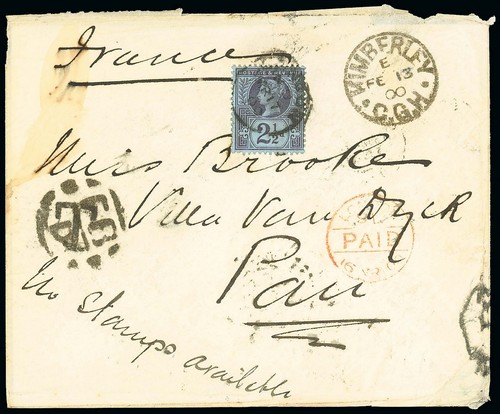 France
POSTAGE & REVENUE
2½d
KIMBERLEY
E
FE 13
00
C.G.H.
Miss Brooke
Villa Van Dyck
PAID
Pau
No Stamps available